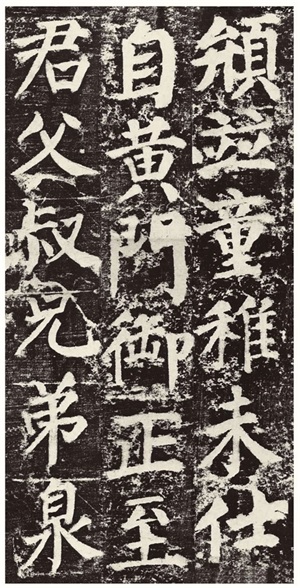 頍並童稚未仕
自黄門御正至
君父叔兄弟泉